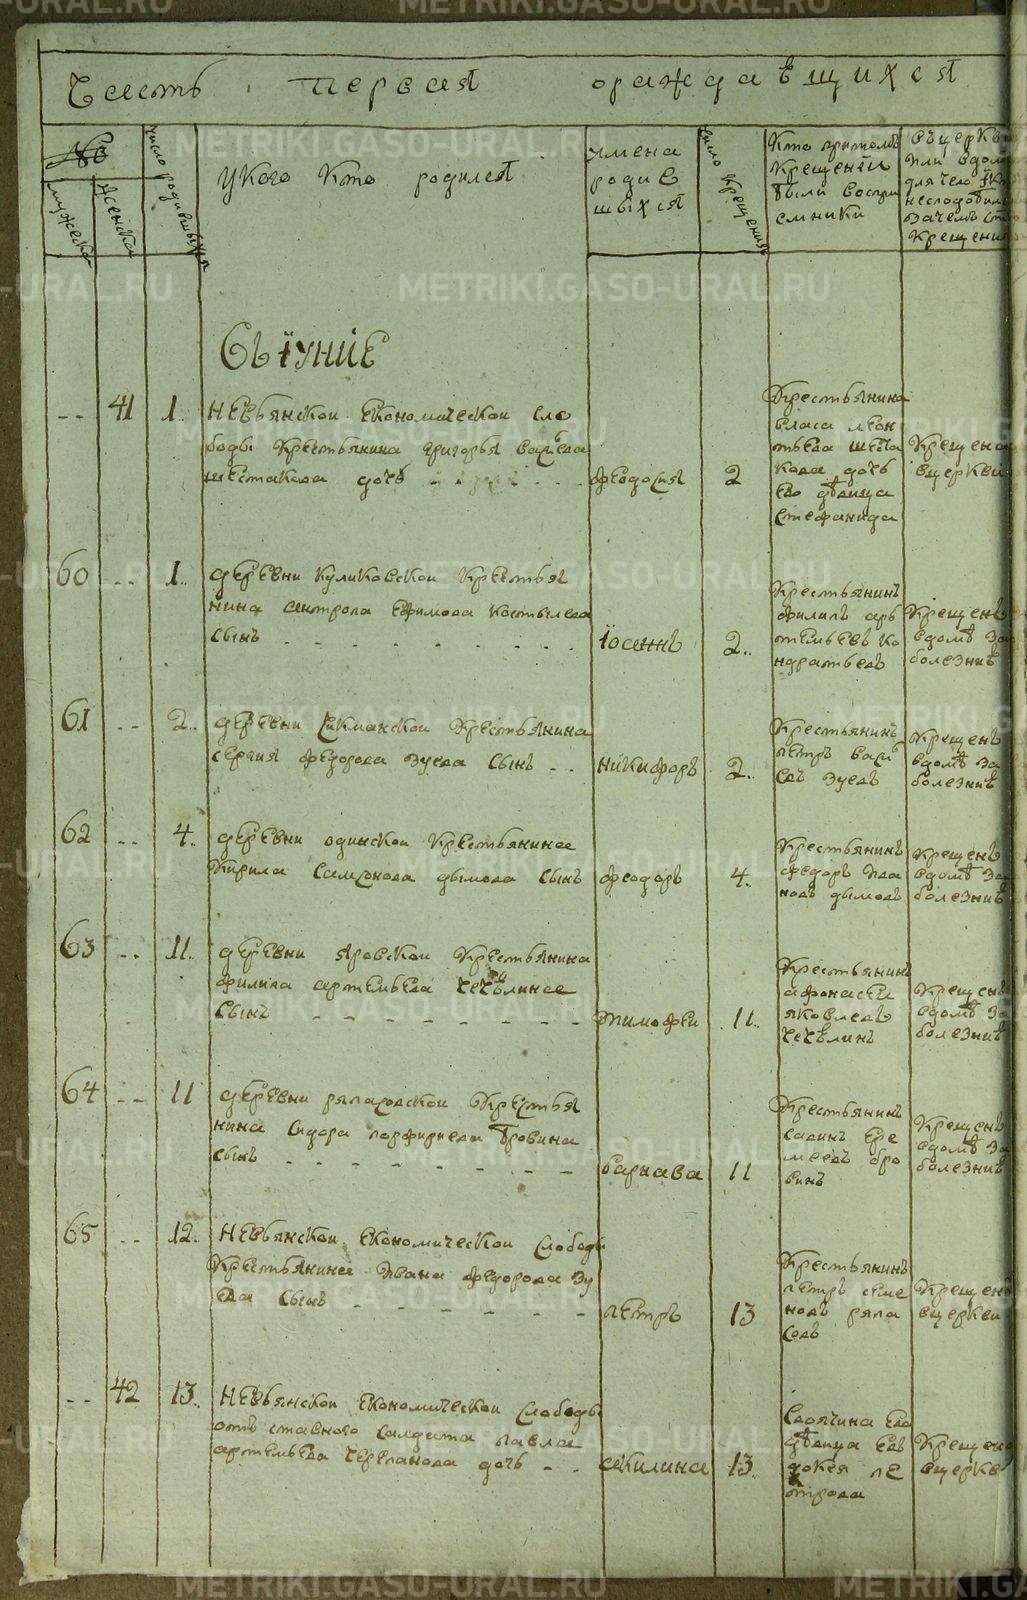 Часть первая ораждаѣщихся
№
мужеска
женска
число родившихся
укого кто родился
имена
родив
шыхся
число крещения
кто притомъ
крещении
были воспри
емники
вцеркв
или вдом
для чего
несподобил
зачемъ
крещени
Въ іуние
-- 41 1. невьянской економической сло
боды крестьянина григорья васильева
шестакова дочь
феодосия 2
крестьянина
власа леон
тьева шеста
кова дочь
ево дѣвица
стефанида
крещена
вцеркви
60 -- 1. деревни куликовской крестья
нина антропа ефимова костылева
сынъ
іосеннъ 2..
крестьянинъ
филипъ арь
темьевъ ко
ндратьевъ
крещенъ
вдомѣ за
болезниѣ
61 -- 2.. деревни сикманской крестьянина
сергия федорова зуева сынъ --
никифоръ 2..
крестьянинъ
петръ васи
евъ зуевъ
крещенъ
вдомѣ за
болезниѣ
62 -- 4. деревни одинской крестьянина
кирила самсонова дымова сынъ
феодоръ 4.
крестьянинъ
федоръ ива
новъ дымовъ
крещенъ
вдомѣ за
болезниѣ
63 -- 11. деревни яровской крестьянина
филипа артемьева чечюлина
сынъ
тимофеи 11..
крестьянинъ
афонасеи
яковлевъ
чечѣлинъ
крещенъ
вдомѣ за
болезниѣ
64 -- 11 деревни ряпасовской крестья
нина сидора порфирьева бровина
сынъ
варнава 11
крестьянинъ
савинъ ере
меевъ бро
винъ
крещенъ
вдомѣ за
болезниѣ
65 -- 12.. невьянской економической слободы
крестьянина ивана федорова зу
ева сынъ
петръ 13
крестьянинъ
петръ семе
новъ ряпа
совъ
крещенъ
вцеркви
-- 42 13.. невьянской економической слободы
отъ ставного салдата павла
артемьева черепанова дочь --
акилина 13.
своячина ево
дѣвица ев
докея пе
трова
крещена
вцеркв
METRIKI.GASO-URAL.RU